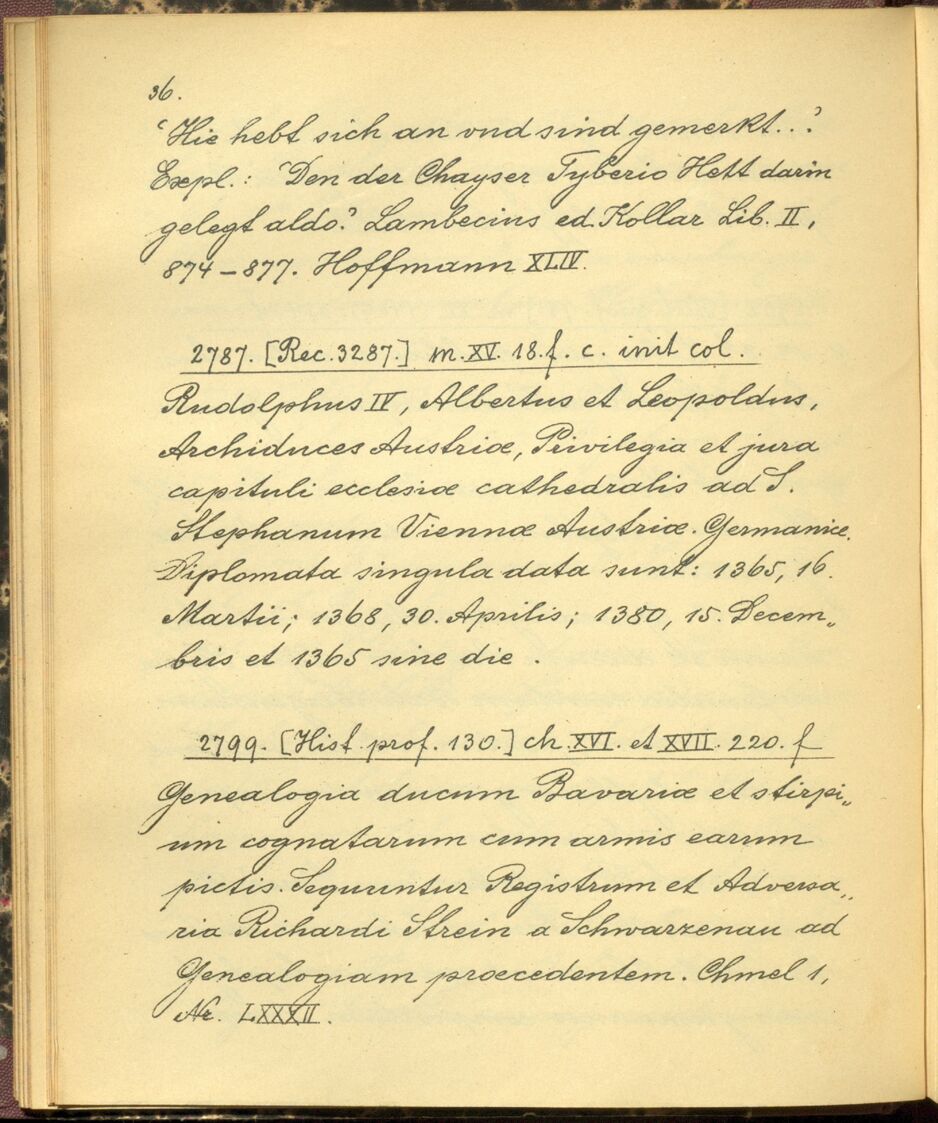 36.
‘Hie hebt sich an vnd sind gemerkt...’
Expl.: ‘Den der Chayser Tyberio Hett darin
gelegt aldo.’ Lambecius ed. Kollar Lib. II,
874–877. Hoffmann XLIV.
2787. [Rec. 3287.] m. XV. 18. f. c. init col.
Rudolphus IV, Albertus et Leopoldus,
Archiduces Austriæ, Privilegia et jura
capituli ecclesiæ cathedralis ad S.
Stephanum Viennæ Austriæ. Germanice.
Diplomata singula data sunt: 1365, 16.
Martii; 1368, 30. Aprilis; 1380, 15. Decem„
bris et 1365 sine die.
2799. [Hist. prof. 130.] ch. XVI. et XVII. 220. f
Genealogia ducum Bavariæ et stirpi„
um cognatarum cum armis earum
pictis. Sequuntur Registrum et Adversa„
ria Richardi Strein a Schwarzenau ad
Genealogiam præcedentem. Chmel 1,
Nr. LXXXII.